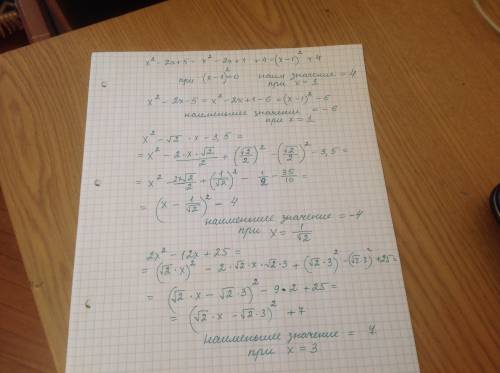 x² - 2x + 5 = x² - 2x + 1 + 4 = (x-1)² + 4
при (x-1)²=0 наим значение = 4
при x = 1
x² - 2x - 5 = x² - 2x + 1 - 6 = (x-1)² - 6
наименьшее значение = -6
при x = 1
x² - √2 · x - 3,5 =
= x² - 2·x·√2/2 + (√2/2)² - (√2/2)² - 3,5 =
= x² - 2x√2/2 + (1/√2)² - 1/2 - 35/10 =
= (x - 1/√2)² - 4
наименьшее значение = -4
при x = 1/√2
2x² - 12x + 25 =
= (√2·x)² - 2·√2·x·√2·3 + (√2·3)² - (√2·3)² + 25 =
= (√2·x - √2·3)² - 9·2 + 25 =
= (√2·x - √2·3)² + 7
Наименьшее значение = 7
при x = 3